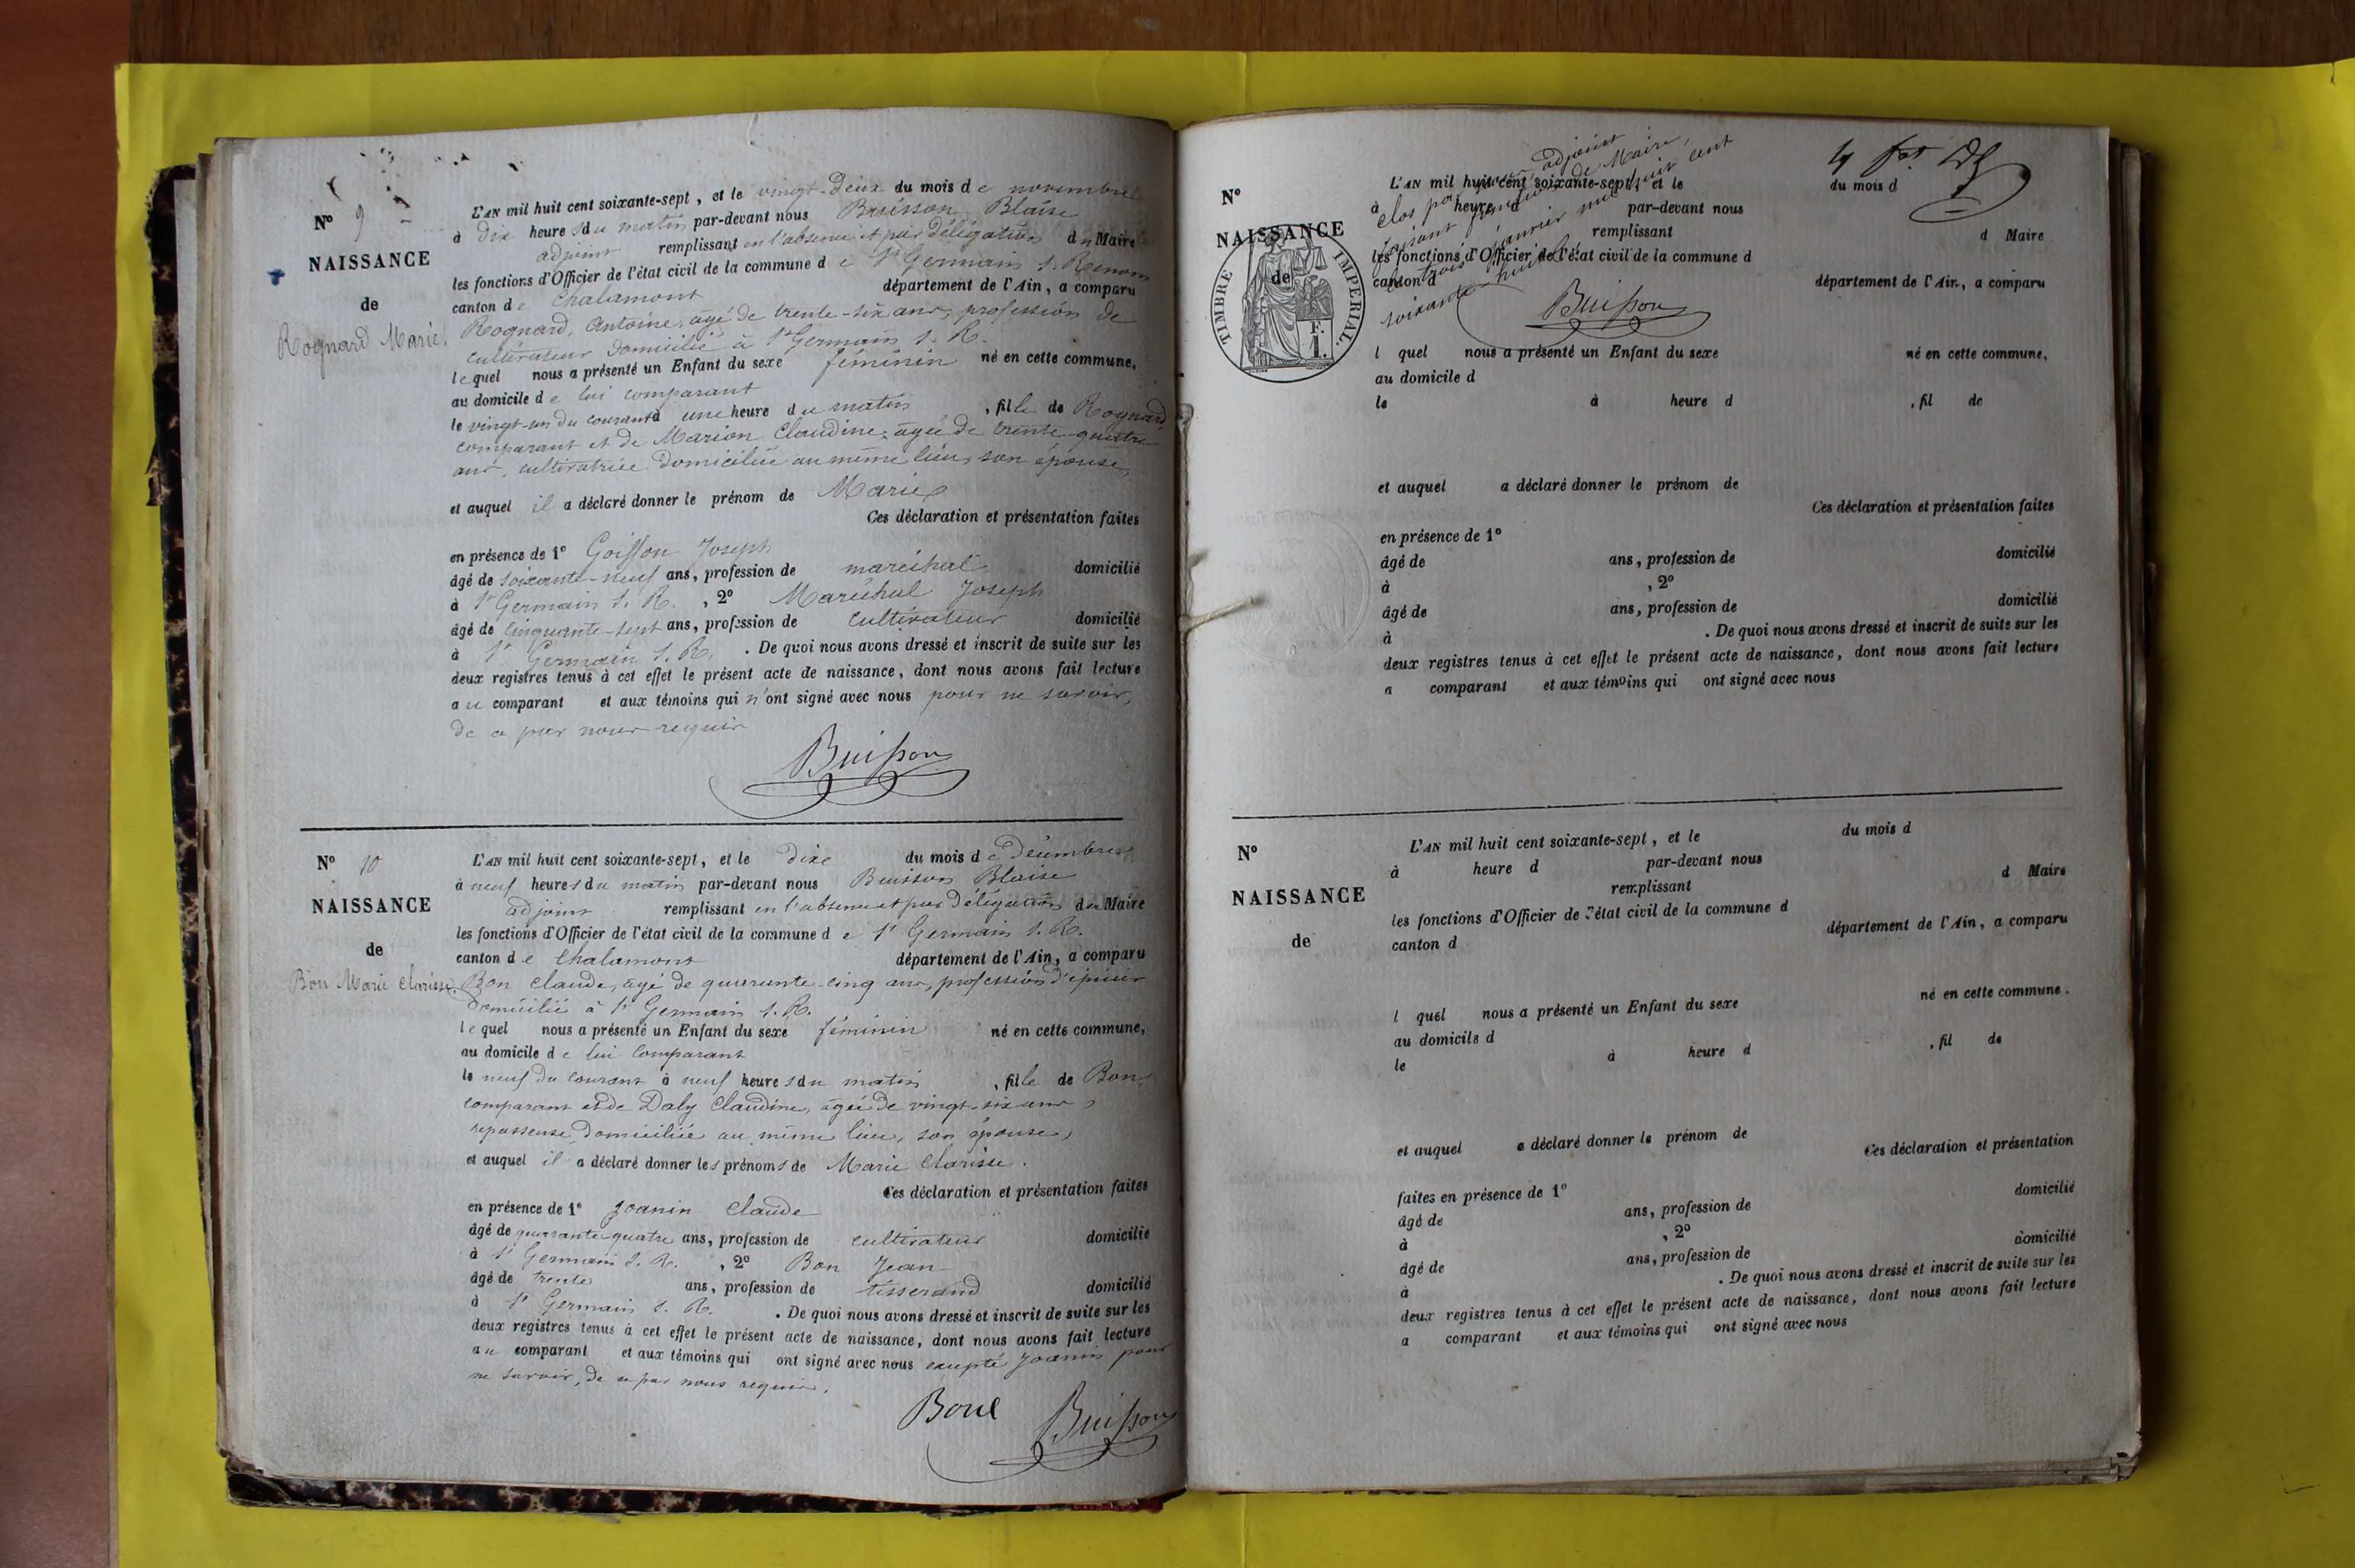 N° 9
NAISSANCE
de
Rognard Marie.
L'AN mil huit cent soixante-sept, et le vingt-deux du mois de novembre
à dix heures du matin par-devant nous Buisson Blaise
adjoint remplissant en l'absence et par délégation du Maire
les fonctions d'Officier de l'état civil de la commune de St Germain s. Renom
canton de Chalamont département de l'Ain, a comparu
Rognard, Antoine, âgé de trente-six ans, profession de
cultivateur domicilié à St Germain s. R.
lequel nous a présenté un Enfant du sexe féminin né en cette commune,
au domicile de lui comparant
le vingt-un du courant à une heure du matin, fille de Rognard,
comparant et de Marion Claudine, âgée de trente-quatre
ans, cultivatrice domiciliée au même lieu, son épouse,
et auquel il a déclaré donner le prénom de Marie
Ces déclaration et présentation faites
en présence de 1° Goiffon Joseph
âgé de soixante-neuf ans, profession de maréchal domicilié
à St Germain s. R., 2° Maréchal Joseph
âgé de cinquante-sept ans, profession de cultivateur domicilié
à St Germain s. R. . De quoi nous avons dressé et inscrit de suite sur les
deux registres tenus à cet effet le présent acte de naissance, dont nous avons fait lecture
au comparant et aux témoins qui n'ont signé avec nous pour ne savoir,
de ce par nous requis
Buisson
N° 10
NAISSANCE
de
Bon Marie Clarisse.
L'AN mil huit cent soixante-sept, et le dixe du mois de Décembre
à neuf heures du matin par-devant nous Buisson Blaise
adjoint remplissant en l'absence et par délégation du Maire
les fonctions d'Officier de l'état civil de la commune de St Germain s. R.
canton de Chalamont département de l'Ain, a comparu
Bon Claude, âgé de quarante-cinq ans, profession d'épicier
domicilié à St Germain s. R.
lequel nous a présenté un Enfant du sexe féminin né en cette commune,
au domicile de lui comparant
le neuf du courant à neuf heures du matin, fille de Bon,
comparant et de Daly Claudine, âgée de vingt-six ans,
repasseuse domiciliée au même lieu, son épouse,
et auquel il a déclaré donner les prénoms de Marie Clarisse.
Ces déclaration et présentation faites
en présence de 1° Joanin Claude
âgé de quarante-quatre ans, profession de cultivateur domicilié
à St Germain s. R., 2° Bon Jean
âgé de trente ans, profession de tisserand domicilié
à St Germain s. R. . De quoi nous avons dressé et inscrit de suite sur les
deux registres tenus à cet effet le présent acte de naissance, dont nous avons fait lecture
au comparant et aux témoins qui ont signé avec nous excepté Joanin pour
ne savoir, de ce par nous requis.
Bone Buisson
N°
NAISSANCE
de
TIMBRE IMPERIAL.
F.
1.
L'AN mil huit cent soixante-sept, et le du mois d
à heure d par-devant nous
remplissant d Maire
les fonctions d'Officier de l'état civil de la commune d
canton d département de l'Ain, a comparu
clos par adjoint
faisant fonctions de Maire,
trois janvier mil huit cent
soixante huit
Buisson
l quel nous a présenté un Enfant du sexe né en cette commune,
au domicile d
le à heure d , fil de
et auquel a déclaré donner le prénom de
Ces déclaration et présentation faites
en présence de 1°
âgé de ans, profession de domicilié
à , 2°
âgé de ans, profession de domicilié
à . De quoi nous avons dressé et inscrit de suite sur les
deux registres tenus à cet effet le présent acte de naissance, dont nous avons fait lecture
a comparant et aux témoins qui ont signé avec nous
N°
NAISSANCE
de
L'AN mil huit cent soixante-sept, et le du mois d
à heure d par-devant nous
remplissant d Maire
les fonctions d'Officier de l'état civil de la commune d
canton d département de l'Ain, a comparu
l quel nous a présenté un Enfant du sexe né en cette commune.
au domicile d
le à heure d , fil de
et auquel a déclaré donner le prénom de
Ces déclaration et présentation
faites en présence de 1°
âgé de ans, profession de domicilié
à , 2°
âgé de ans, profession de domicilié
à . De quoi nous avons dressé et inscrit de suite sur les
deux registres tenus à cet effet le présent acte de naissance, dont nous avons fait lecture
a comparant et aux témoins qui ont signé avec nous